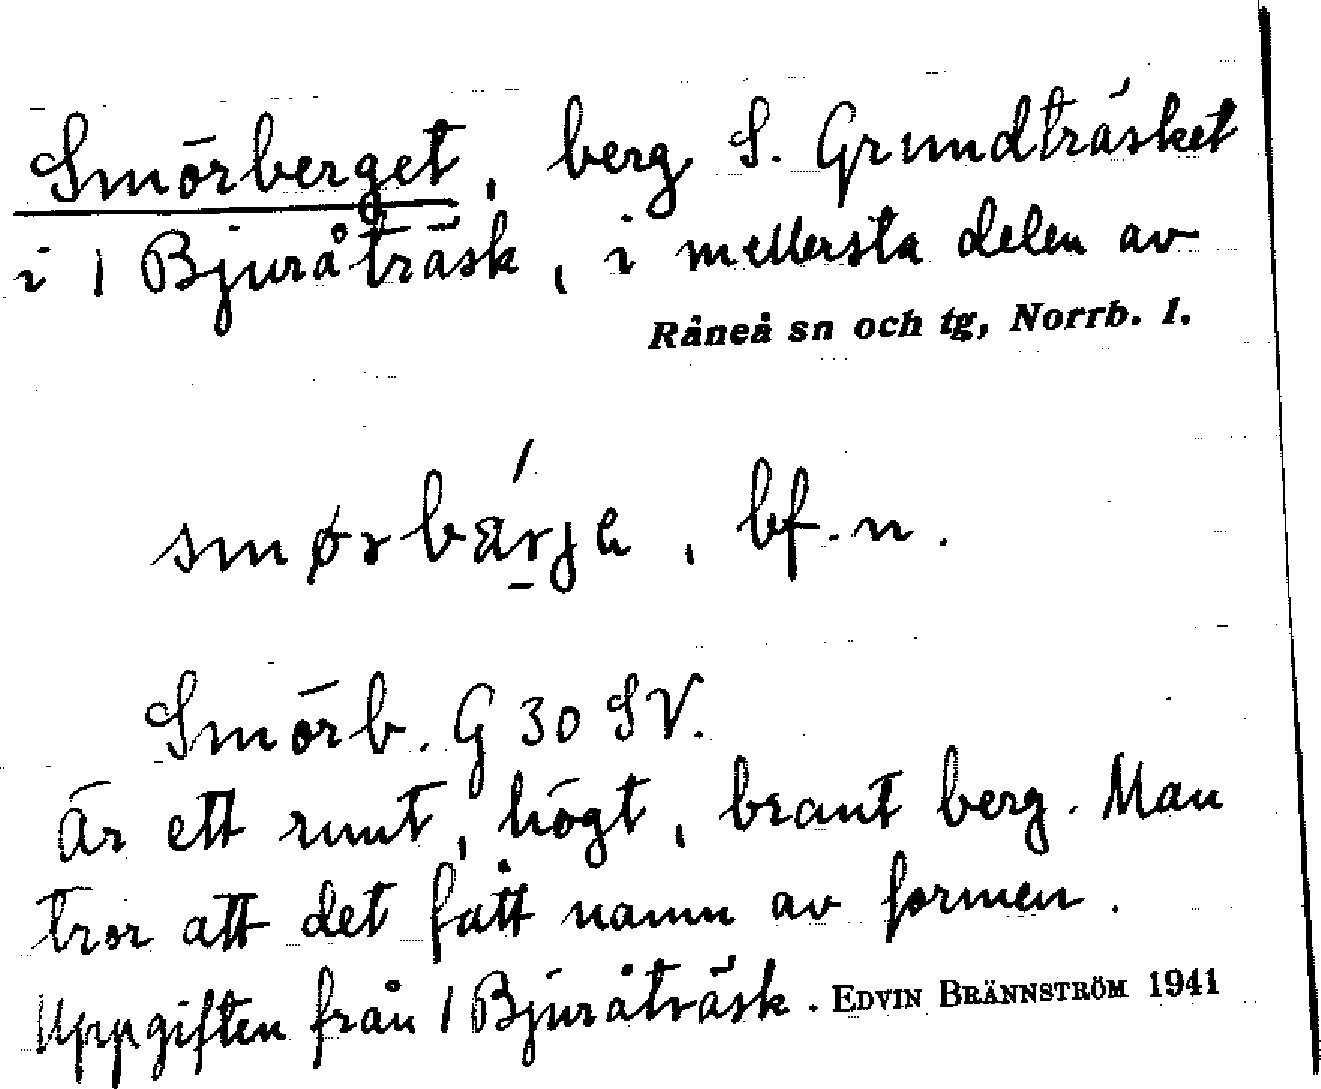 Smörberget, berg S. Grundträsket
i 1 Bjuråträsk, i mellersta delen av
Råneå sn och tg, Norrb. l.
smørbä́rja, bf. n.
Smörb. G 30 SV.
Är ett runt, högt, brant berg. Man
tror att det fått namn av formen.
Uppgiften från 1 Bjuråträsk. EDVIN BRÄNNSTRÖM 1941